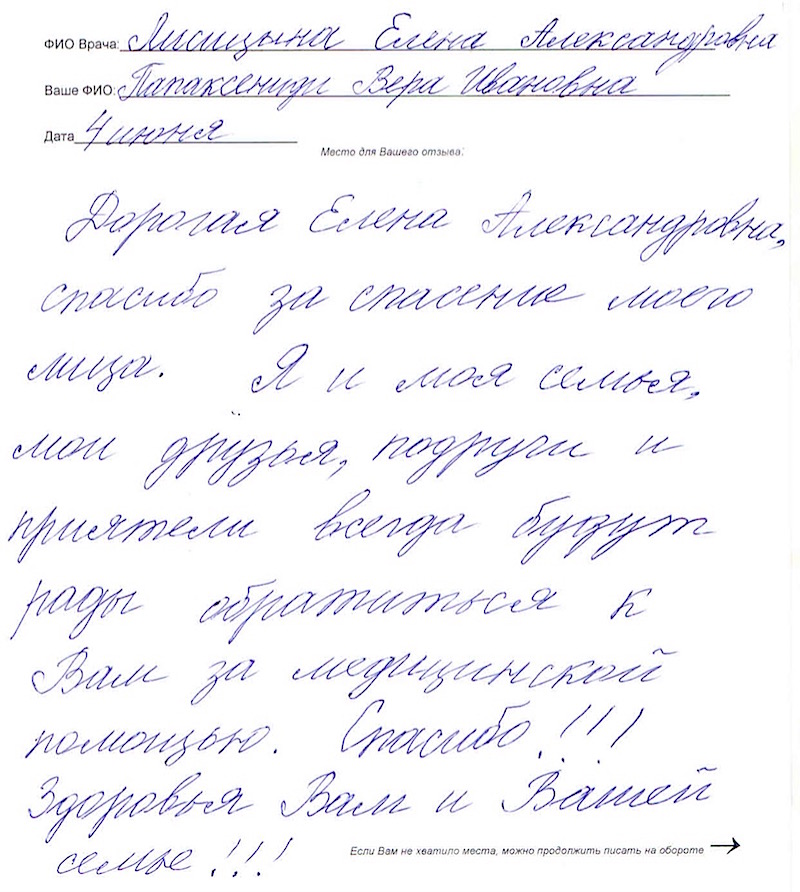 ФИО Врача: Лисицына Елена Александровна
Ваше ФИО: Папаксениди Вера Ивановна
Дата 4 июня
Место для Вашего отзыва:
Дорогая Елена Александровна,
спасибо за спасение моего
лица. Я и моя семья,
мои друзья, подруги и
приятели всегда будут
рады обратиться к
Вам за медицинской
помощью. Спасибо!!!
Здоровья Вам и Вашей
семье!!!
Если Вам не хватило места, можно продолжить писать на обороте →